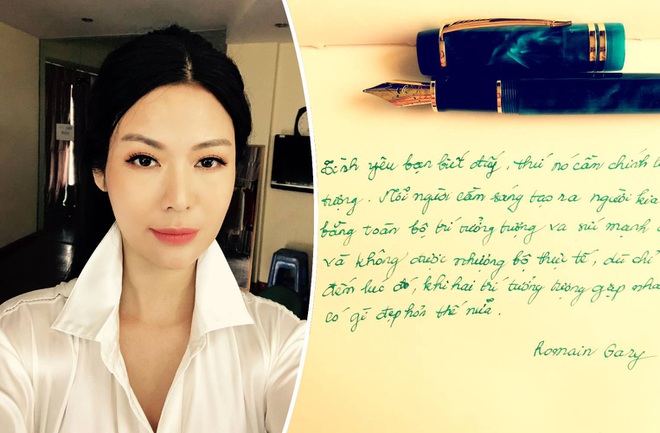 Tình yêu bạn biết đấy, thứ nó cần chính
tượng. Mỗi người cần sáng tạo ra người kia
bằng toàn bộ trí tưởng tượng và sức mạnh
và không được nhượng bộ thực tế, dù chỉ
đến lúc đó, khi hai trí tưởng tượng gặp nha
có gì đẹp hơn thế nữa.
Romain Gary